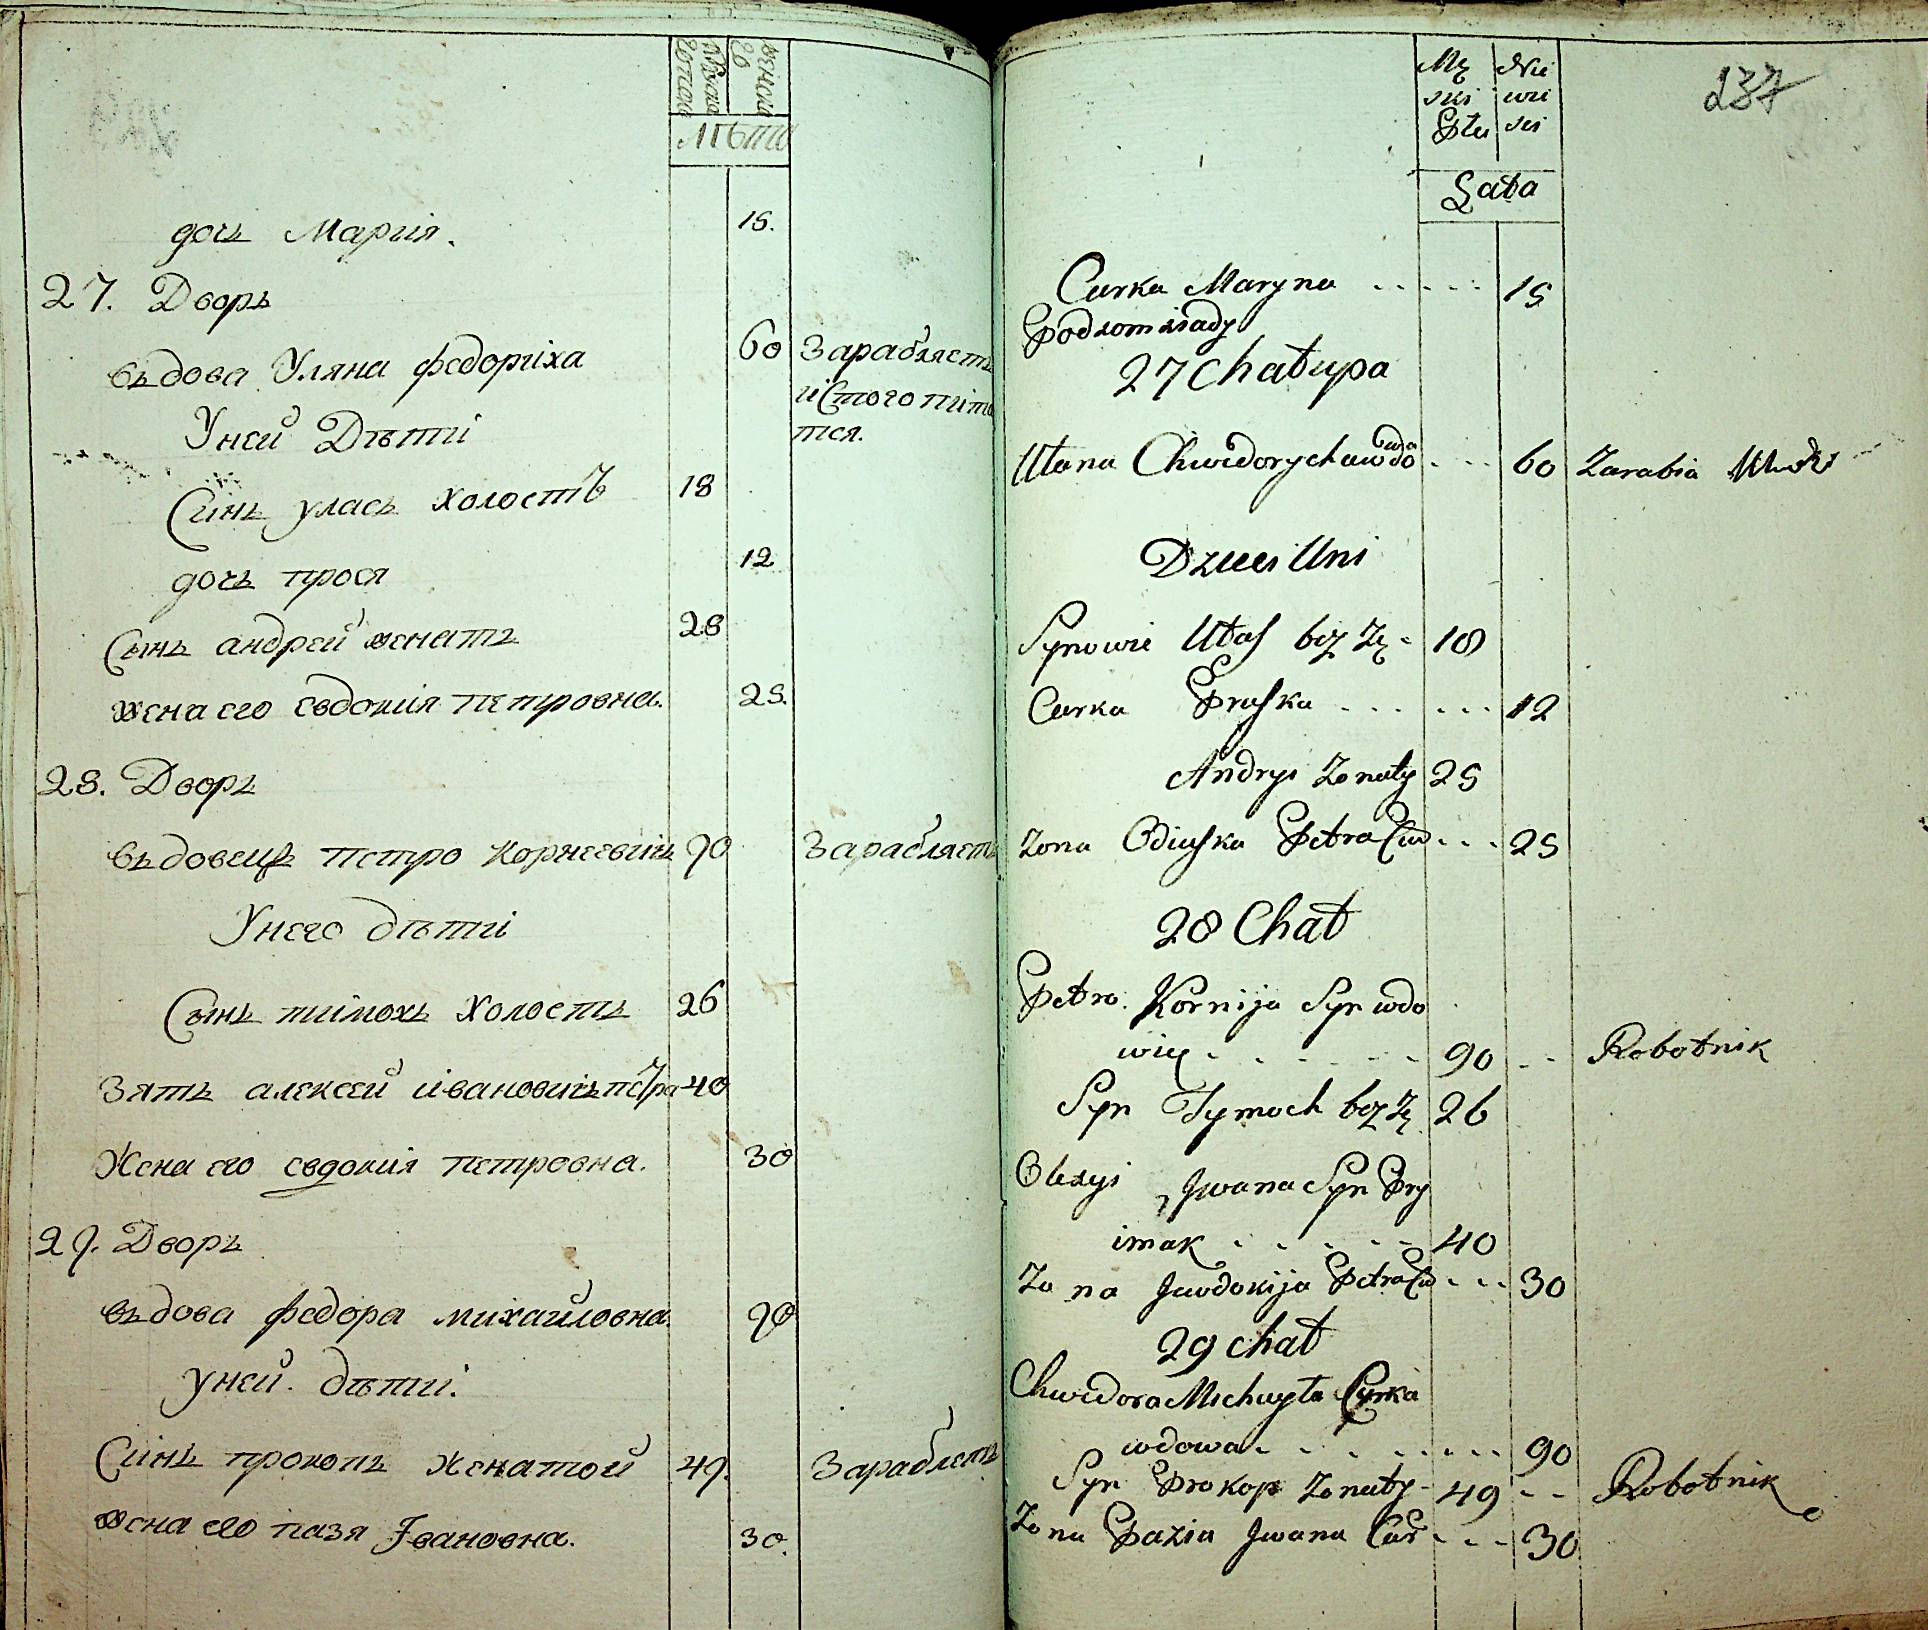 женска
лѣта
дочь Мария. 15.
27. Дворъ
въдова Уляна федориха 60 Зарабляетъ
и Стого пита
Уней Дѣти тся.
Синъ уласъ холостъ 18
дочь прося 12
Сынъ андрей женатъ 28
жена его евдокия петровна. 25.
28. Дворъ
въдовецъ петро корнеевичъ 90 Зарабляетъ
Унего дѣти
Сынъ тимохъ холостъ 26
Зять алексей ивановичъ петра 40
Жена его евдокия петровна. 30
29. Дворъ
въдова федора михайловна. 90
уней. дѣти.
Синъ прокопъ женатой 49. Зараблетъ
жена его пазя Iвановна. 30.
237
Mę Nie
ski wie
Płu ski
Lata
Curka Maryna 15
Podsomsiady
27 Chałupa
Ułana Chwedorycha wdo
wa 60 Zarabia
Dzieci Uni
Synowie Ułas bez Zę 18
Curka Praska 12
Andryi Zonaty 25
Zona Odiuska Petra Cur 25
28 Chał
Petro Kornija Syn wdo
wiec 90 Robotnik
Syn Tymoch bez Zę 26
Olexyi Jwana Syn Pry
imak 40
Zona Jewdokija Petra Cur 30
29 chał
Chwedora Michayła Curka
wdowa 90
Syn Prokop Zonaty 49 Robotnik
Zona Pazia Jwana Cur 30